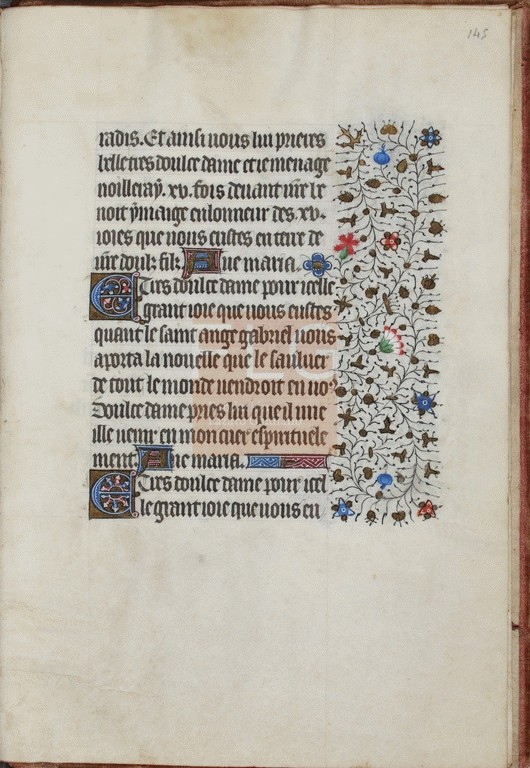 145
radis. Et ainsi uous lui prieres
belle tres doulce dame et ie menage
noilleray. xv. fois deuant ur̃e be
noit ymaige en lonneur des. xv.
ioies que uous eustes en terre de
ur̃e doulz filz. Aue maria.
E Tres doulce dame pour icelle
grant ioie que uous eustes
quant le saint ange gabriel uous
aporta la nouelle que le sauluer
de tout le monde uendroit en uo9
Doulce dame pries lui que il uue
ille uenir en mon cuer espirituele
ment. Aue maria.
E Tres doulce dame pour icel
le grant ioie que uous eu